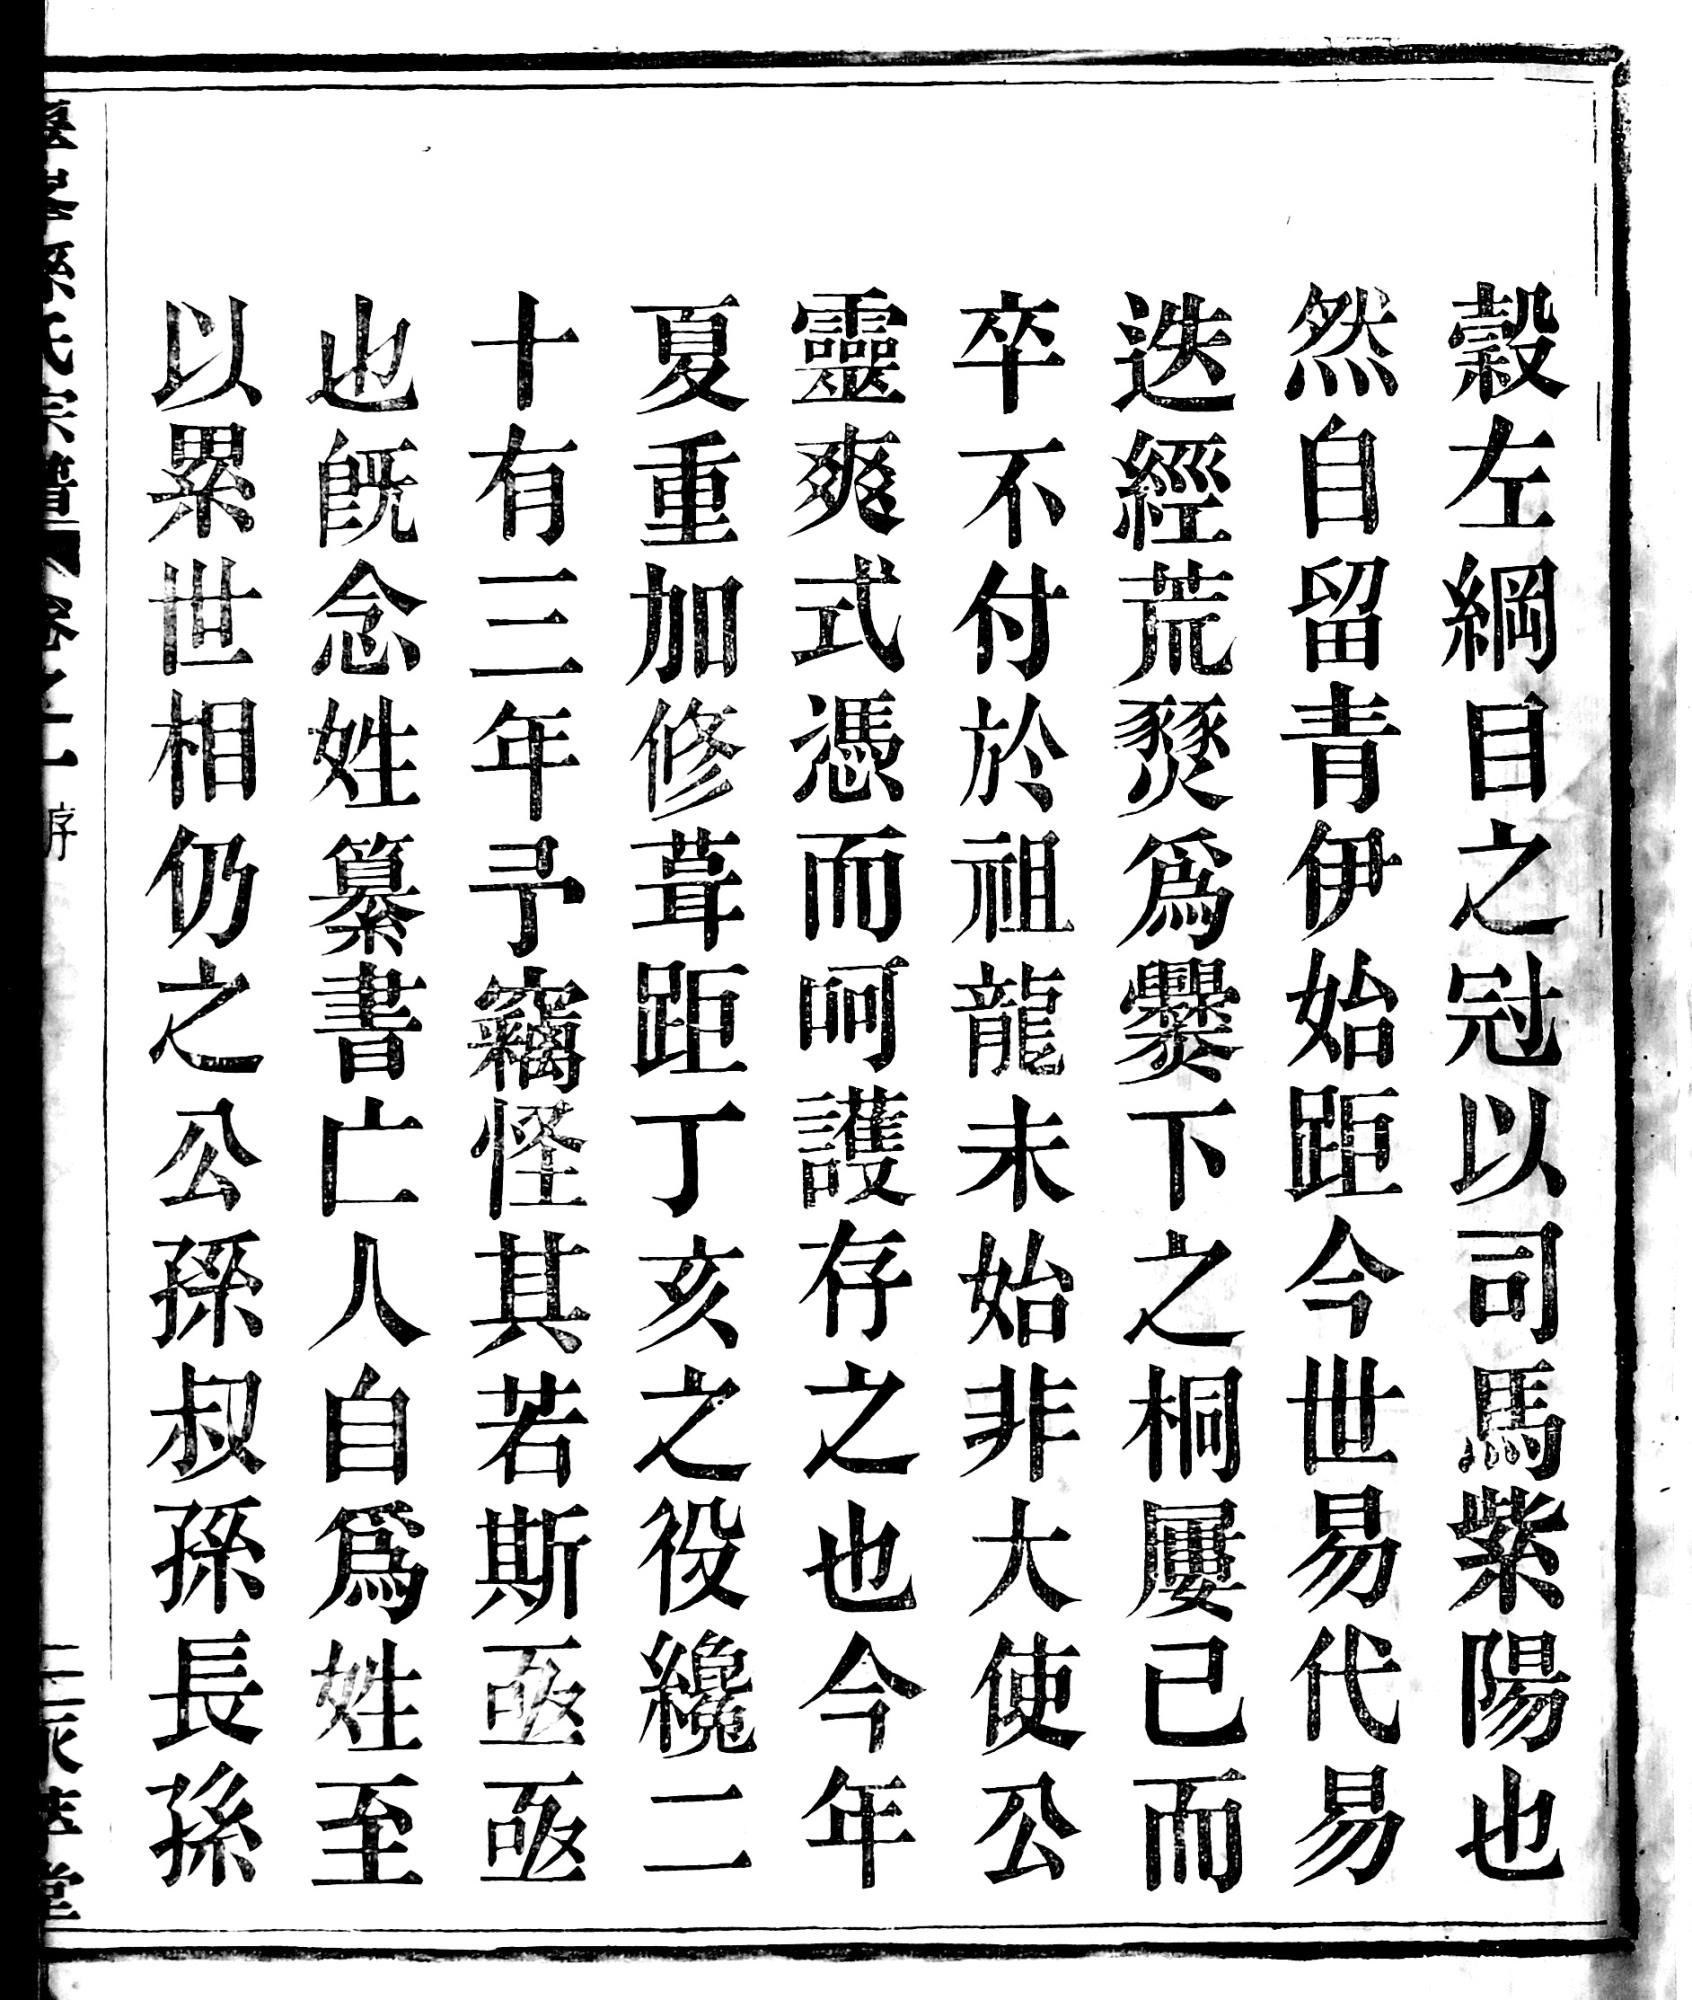 穀左綱目之冠以司馬紫陽也
然自留青伊始距今世易代易
迭經荒燹爲爨下之桐屢己而
卒不付於祖龍未始非大使公
靈爽式憑而呵護存之也今年
夏重加修葺距丁亥之役纔二
十有三年予竊怪其若斯亟亟
也旣念姓纂書亡人自爲姓至
以累世相仍之公孫叔孫長孫
孫氏宗譜 卷之一 序